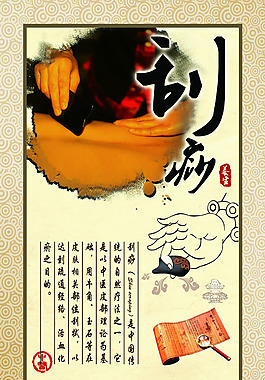 刮痧
养生
刮痧（Gua scraping）是中国传
统的自然疗法之一，它
是以中医皮部理论为基
础，用牛角、玉石等在
皮肤相关部位刮拭，以
达到疏通经络、活血化
瘀之目的。